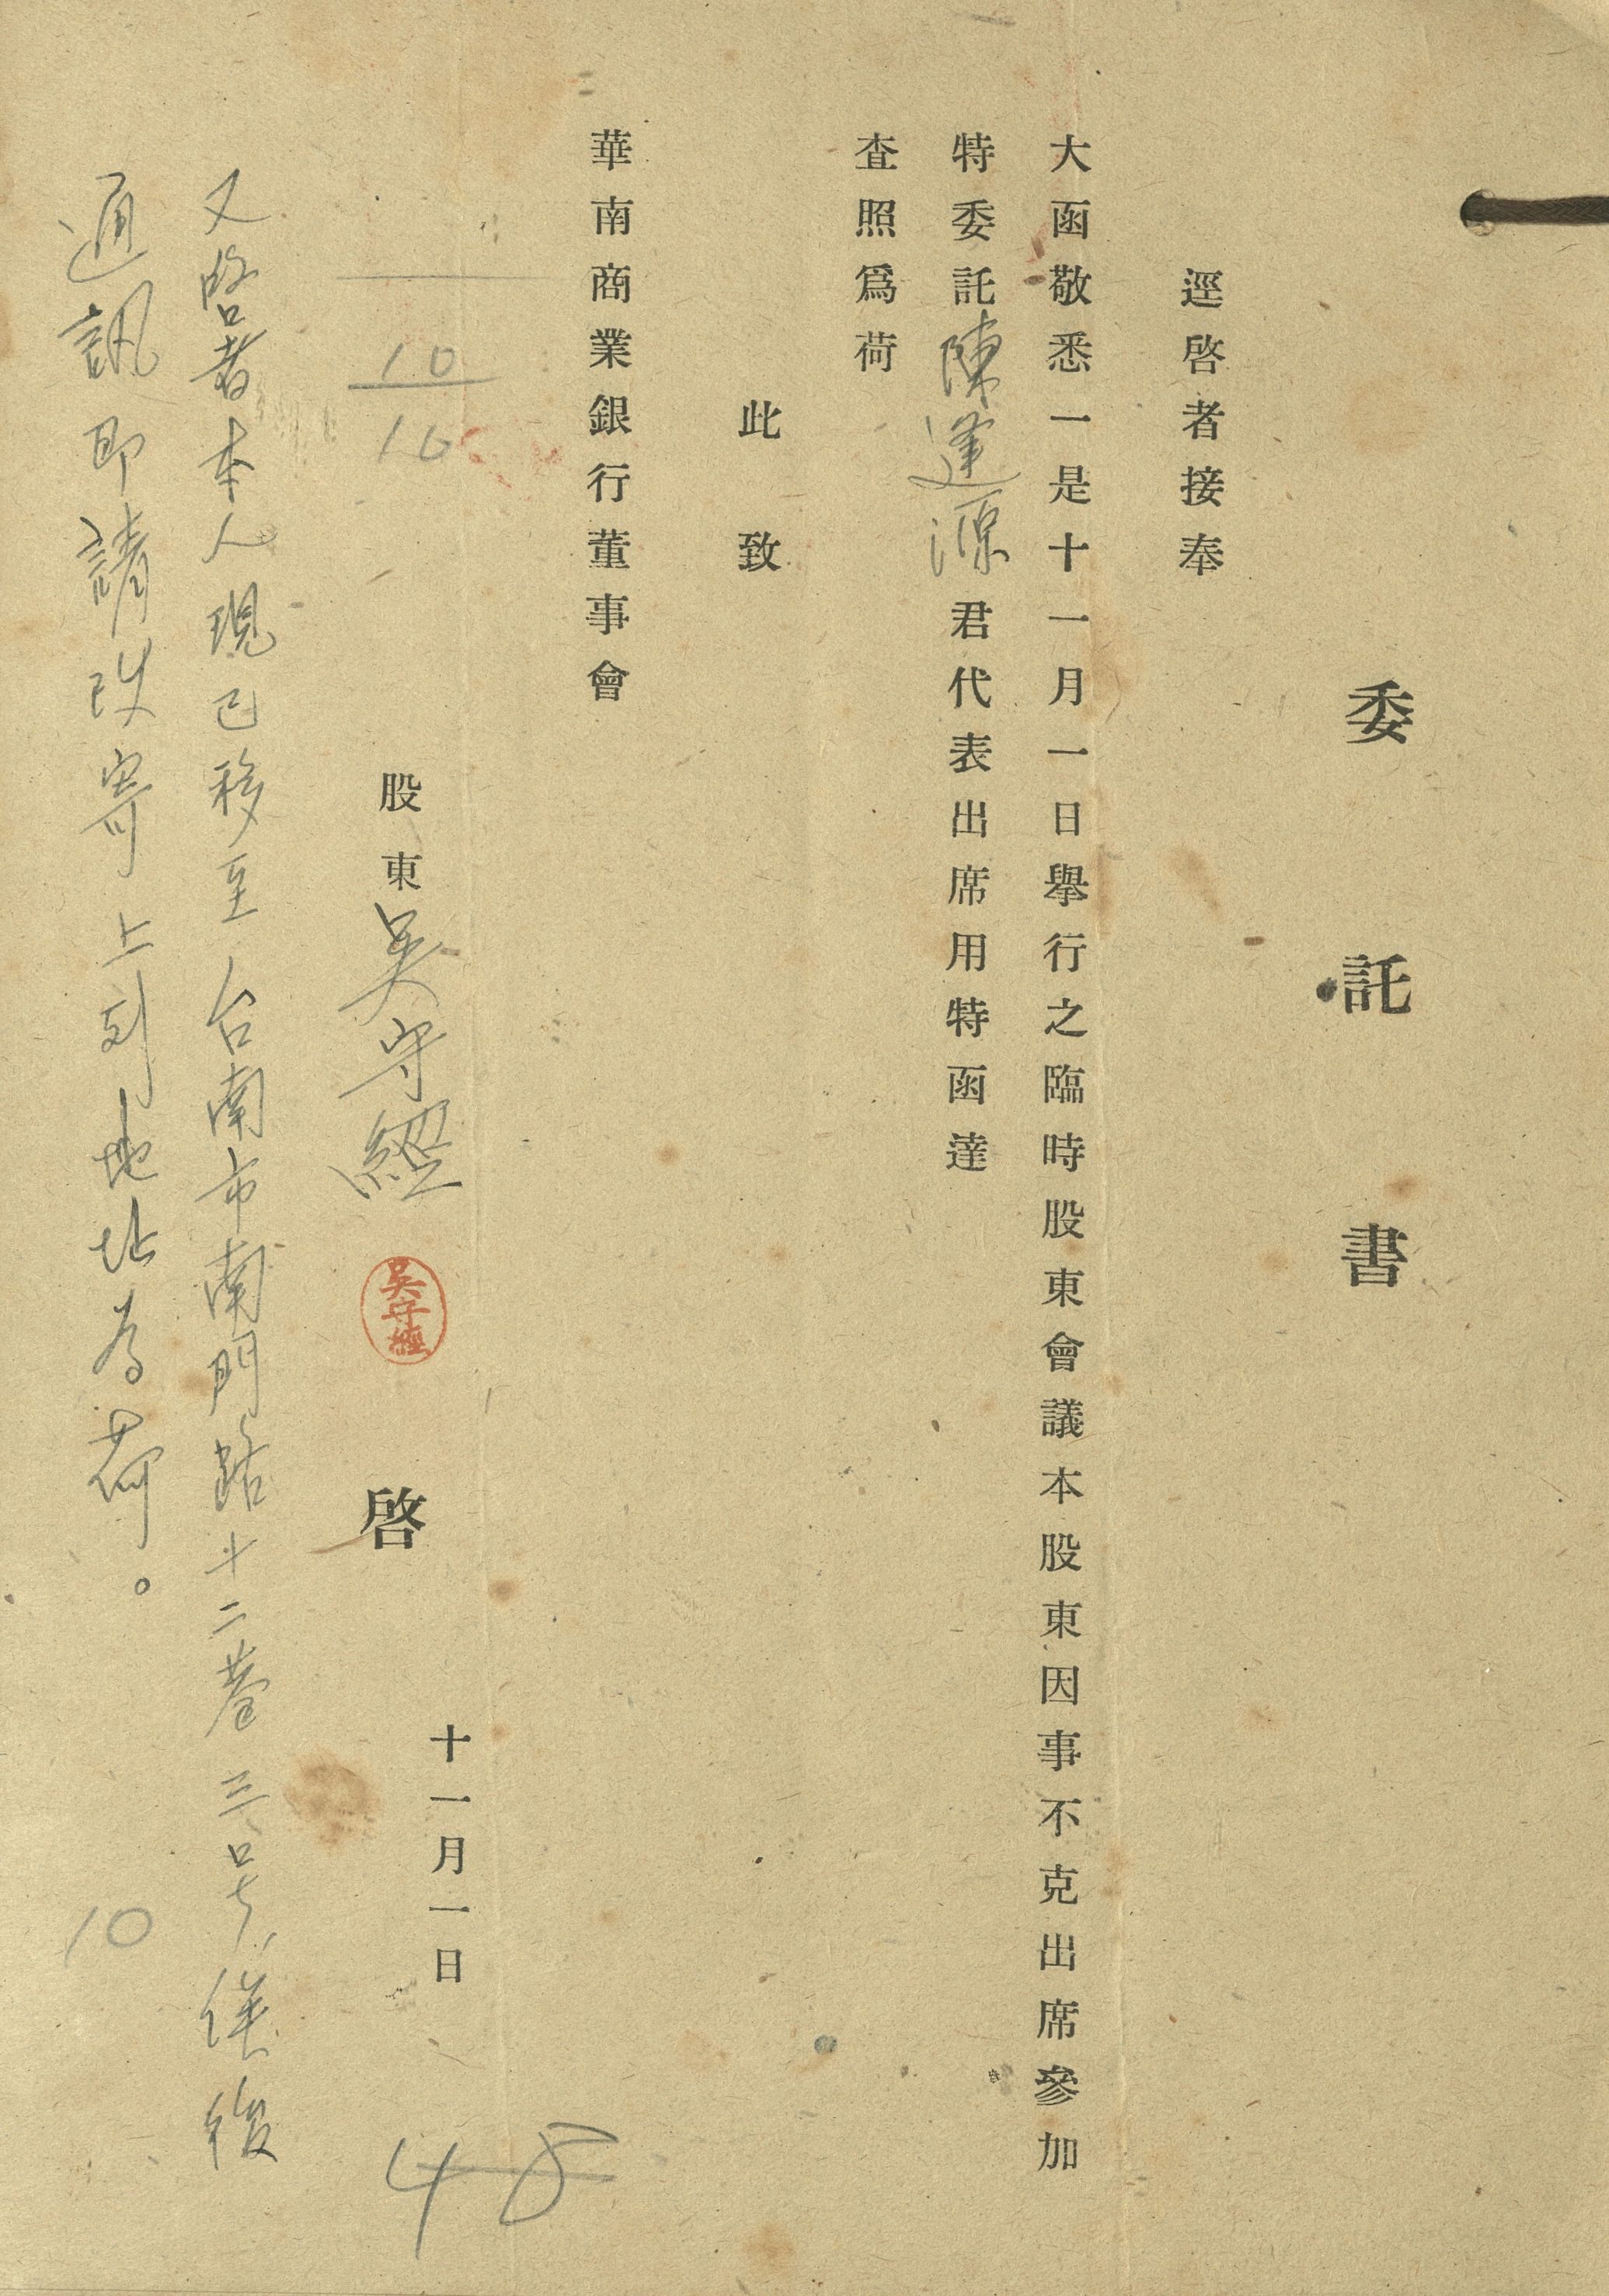 委託書
逕啓者接奉
大函敬悉一是十一月一日舉行之臨時股東會議本股東因事不克出席參加
特委託陳逢源君代表出席用特函達
查照爲荷
此致
華南商業銀行董事會
十一月一日
股東吳守經 吳守經 啓
10
16
48
又啓者本人現已移至台南市南門路十二巷三号，俟後
通訊即請改寄上列地址為荷。
10